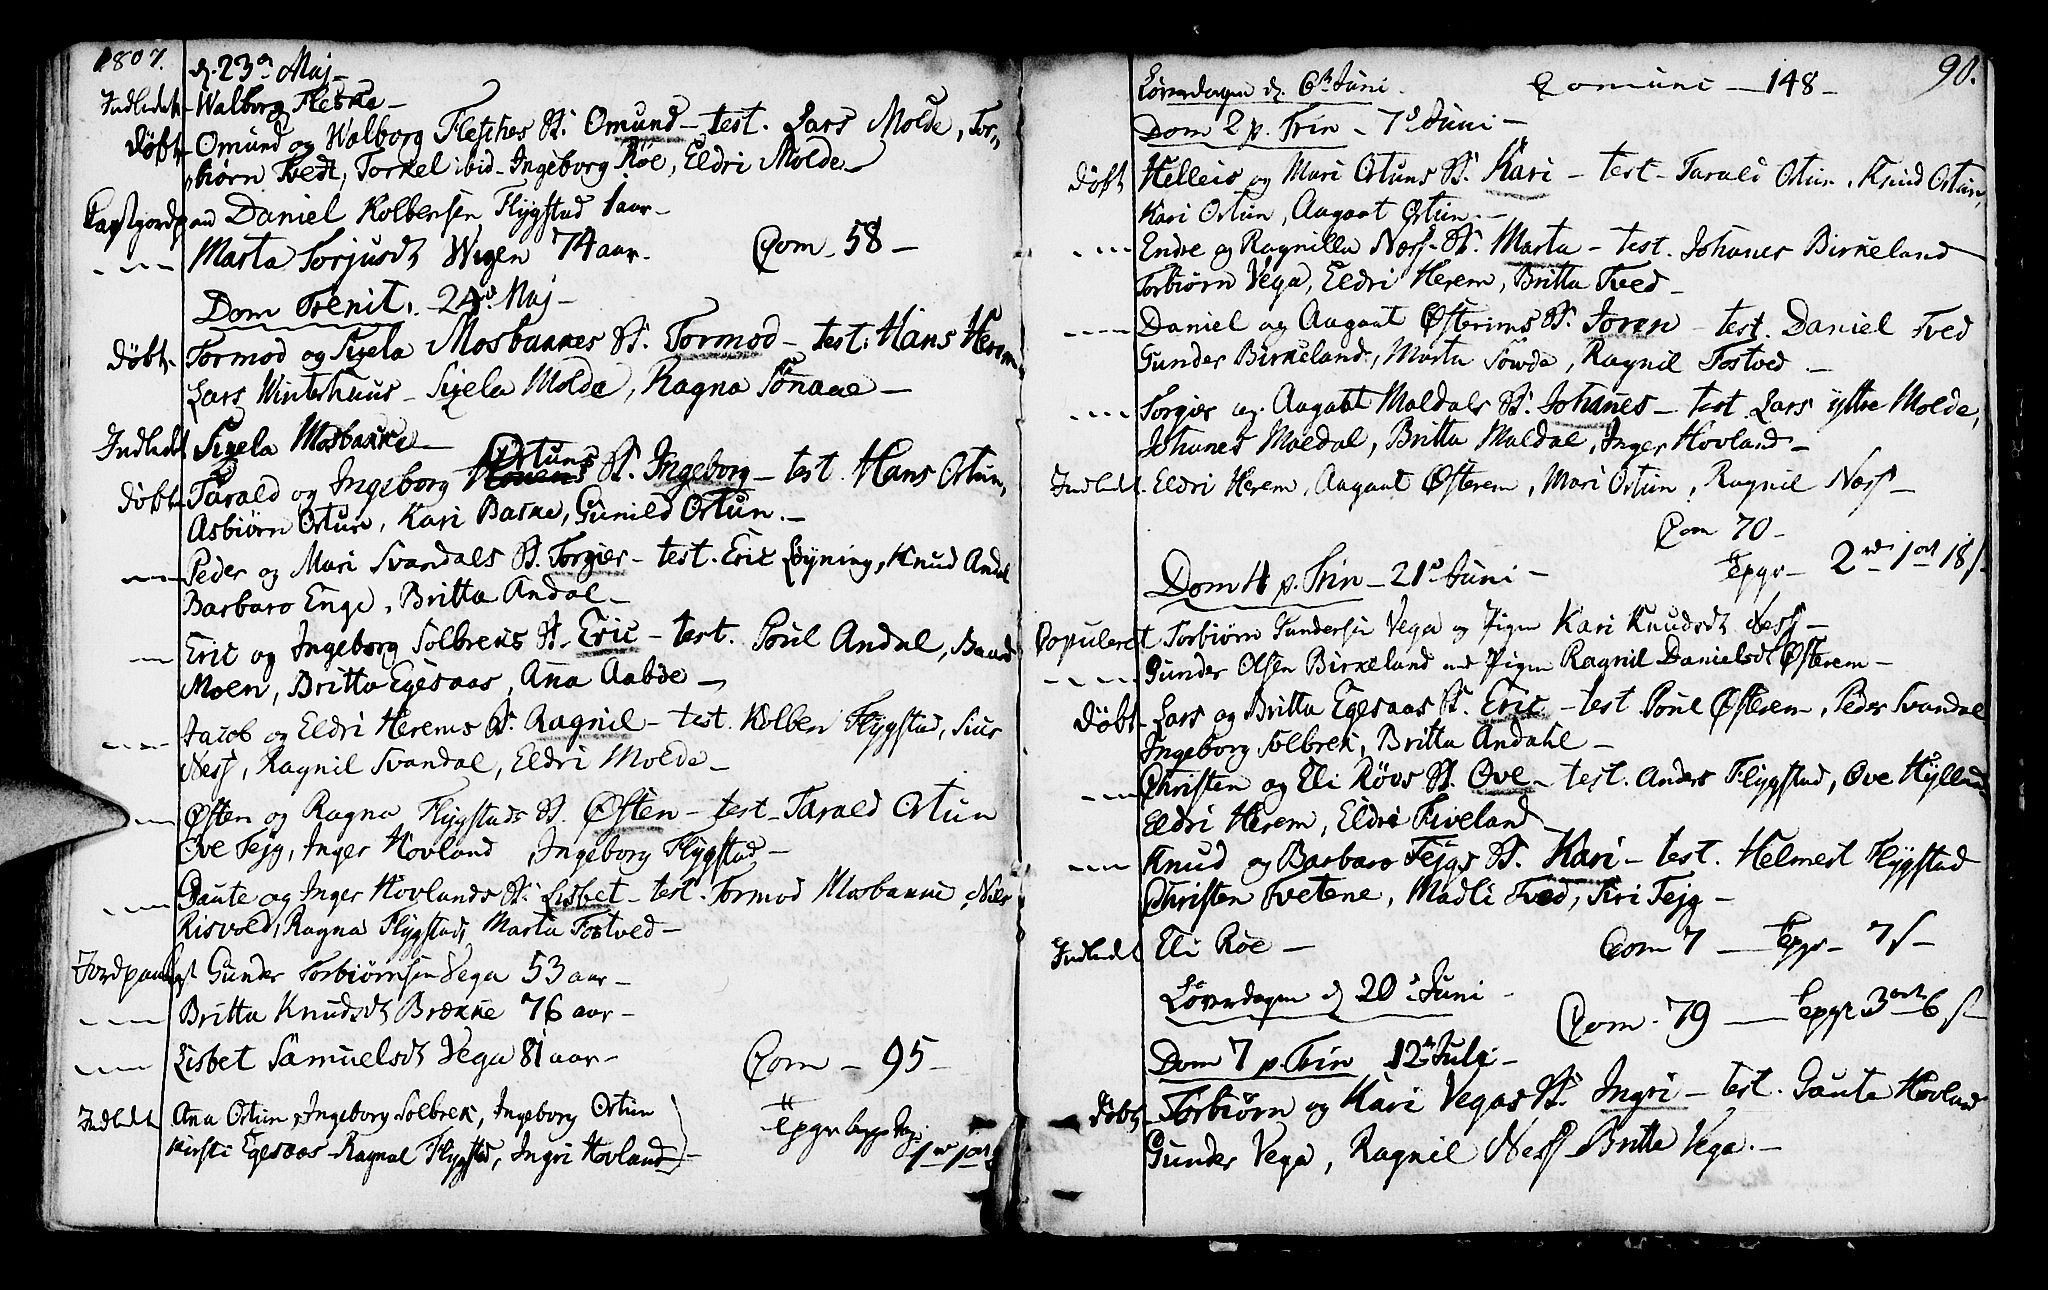 1807.
d. 23de Maj -
Indledt - Walborg Fletke -
Døbt - Omund og Walborg Fletches B. Omund - test. Lars Molde, Tor-
biørn Tvedt, Torkel ibid - Ingeborg Røe, Eldri Molde -
Daniel Kolbensen Flygstad 1 aar -
- - - Marta Torjusd Wegen 74 aar - Com - 58 -
Dom Trenit: 24de Maj -
Døbt - Tormod og Sizela Mosbakkes B. Tormod - test: Hans Herem
Lars Winterhuus - Sizela Molde, Ragna Sønaae -
Indledt Sizela Mosbakke -
Døbt - Tarald og Ingeborg Ortuns B. Ingeborg - test. Hans Ortun,
Asbiørn Ortun, Kari Bakke, Gunild Ortun -
- - - Peder og Mari Svandals B. Torgier - test. Eric Løyning, Knud Andal
Barbaro Enge, Britta Andal -
- - Eric og Ingeborg Solbreks B. Eric - test. Poul Andal, Baard
Moen, Britta Egesaas, Ana Aabøe -
- - - Jacob og Eldri Herems B. Ragnil - test. Kolben Flygstad, Siur
Ness, Ragnil Svandal, Eldri Molde -
- - Østen og Ragna Flygstads B. Østen - test - Tarald Ortun
Ove Tejg, Inger Hovland, Ingeborg Flygstad -
- - - Gaute og Inger Hovlands B. Lisbet - test. Tormod Mosbakke, Niels
Risvold, Ragna Flygstad, Marta Tostved -
Jordpaak: Gunder Torbiørnsen Vega 53 aar -
- - - Britta Knudsd Brække 76 aar -
- - - Lisbet Samuelsd Vega 81 aar - Com - 95 -
Indledt Ana Ortun, Ingeborg Solbrek, Ingeborg Ortun
Kirsti Egesaas - Ragnal Flygstad, Ingri Hovland -
90.
Løverdagen d. 6te Juni. Comuni - 148 -
Dom 2 p. Trin - 7de Juni -
Døbt Helleis og Mari Ortuns B. Kari - test - Tarald Ortun, Knud Ortun,
Kari Ortun, Aagaat Ortun. -
- - - Endre og Ragnilla Ness B. Marta - test. Johanes Birkeland
Torbiørn Vega, Eldri Herem, Britta Tved -
- - - Daniel og Aagaat Østerims B. Soren - test. Daniel Tved
Gunder Birkeland, Marta Søwde, Ragnil Tostved -
- - - Torgier og Aagaat Maldals B. Johanes - test. Lars yttre Molde,
Johanes Maldal, Britta Maldal, Inger Hovland -
Indledt. Eldri Herem, Aagaat Østerem, Mari Ortun, Ragnil Ness -
Com 70 -
Dom 4 p. Trin - 21de Juni - 2 rd 1 ort 18 s -
Copuleret Torbiørn Gundersen Vega og Pigen Kari Knudsd Ness -
- - - Gunder Olsen Birkeland med Pigen Ragnil Danielsd Østerem -
Døbt - Lars og Britta Egesaas B. Eric - test Poul Østerem, Peder Svandal
Ingeborg Solbrek, Britta Andahl -
- - - Christen og Eli Røvs B. Ove - test. Anders Flygstad, Ove Hylland
Eldri Herem, Eldri Fiveland
- - - Knud og Barbaro Tejgs B. Kari - test. Helmert Flygstad
Christen Tvetene, Madli Tved, Siri Tejg -
Indledt Eli Røe - Com 7 - 7 s -
Løverdagen d 20de Juni - Com - 79 - 3 ort 6 s -
Dom 7 p Trin 12te Juli -
Døbt - Torbiørn og Kari Vegas B. Ingri - test. Gaute Hovland
Gunder Vega, Ragnil Ness Britta Vega. -